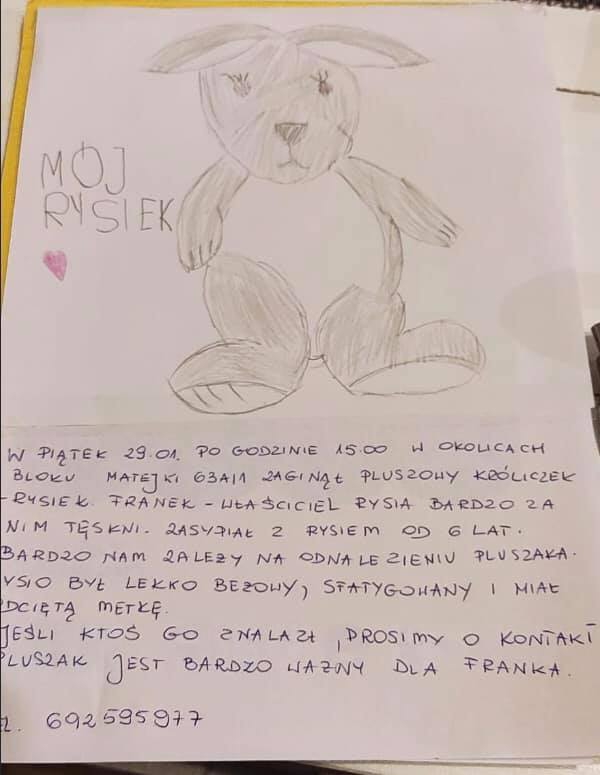 MÓJ
RYSIEK
W PIĄTEK 29.01. PO GODZINIE 15.00 W OKOLICACH
BLOKU MATEJKI 63A/1 ZAGINĄŁ PLUSZOWY KRÓLICZEK
-RYSIEK. FRANEK - WŁAŚCICIEL RYSIA BARDZO ZA
NIM TĘSKNI. ZASYPIAŁ Z RYSIEM OD 6 LAT.
BARDZO NAM ZALEŻY NA ODNALEZIENIU PLUSZAKA.
YSIO BYŁ LEKKO BEŻOWY, SFATYGOWANY I MIAŁ
DCIĘTĄ METKĘ.
JEŚLI KTOŚ GO ZNALAZŁ, PROSIMY O KONTAKT
PLUSZAK JEST BARDZO WAŻNY DLA FRANKA.
EL. 692595977